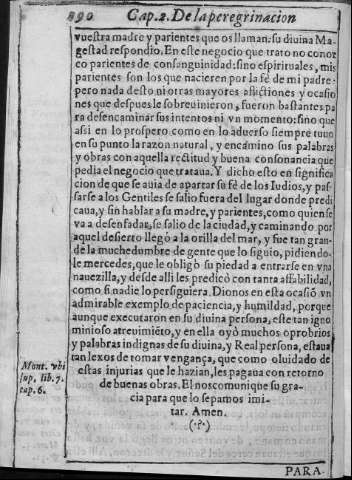 890 Cap. 2. De la peregrinacion
vuestra madre y parientes que os llaman: su diuina Ma-
gestad respondio. En este negocio que trato no conoz
co parientes de consanguinidad: sino espirituales, mis
parientes son los que nacieren por la fè de mi padre:
pero nada desto ni otras mayores aflictiones y ocasio
nes que despues le sobreuinieron, fueron bastantes pa
ra desencaminar sus intentos ni vn momento: sino que
assi en lo prospero como en lo aduerso siempre tuuo
en su punto la razon natural, y encamino sus palabras
y obras con aquella rectitud y buena consonancia que
pedia el negocio que trataua. Y dicho esto en significa
cion de que se auia de apartar su fè de los Iudios, y pas-
sarse a los Gentiles se salio fuera del lugar donde predi
caua, y sin hablar a su madre, y parientes, como quien se
va a desenfadar, se salio de la ciudad, y caminando por
aquel desierto llegò a la orilla del mar, y fue tan gran-
de la muchedumbre de gente que lo siguio, pidiendo-
le mercedes, que le obligò su piedad a entrarse en vna
nauezilla, y desde alli les predicò con tanta affabilidad,
como si nadie lo persiguiera. Dionos en esta ocasiō vn
admirable exemplo de paciencia, y humildad, porque
aunque executaron en su diuina persona, este tan igno
minioso atreuimiēto, y en ella oyò muchos oprobrios
y palabras indignas de su diuina, y Real persona, estaua
tan lexos de tomar vengança, que como oluidado de
estas injurias que le hazian, les pagaua con retorno
de buenas obras. El nos comunique su gra-
cia para que lo sepamos imi-
tar. Amen.
(·?·)
Mont. vbi
sup. lib. 7.
cap. 6.
PARA-